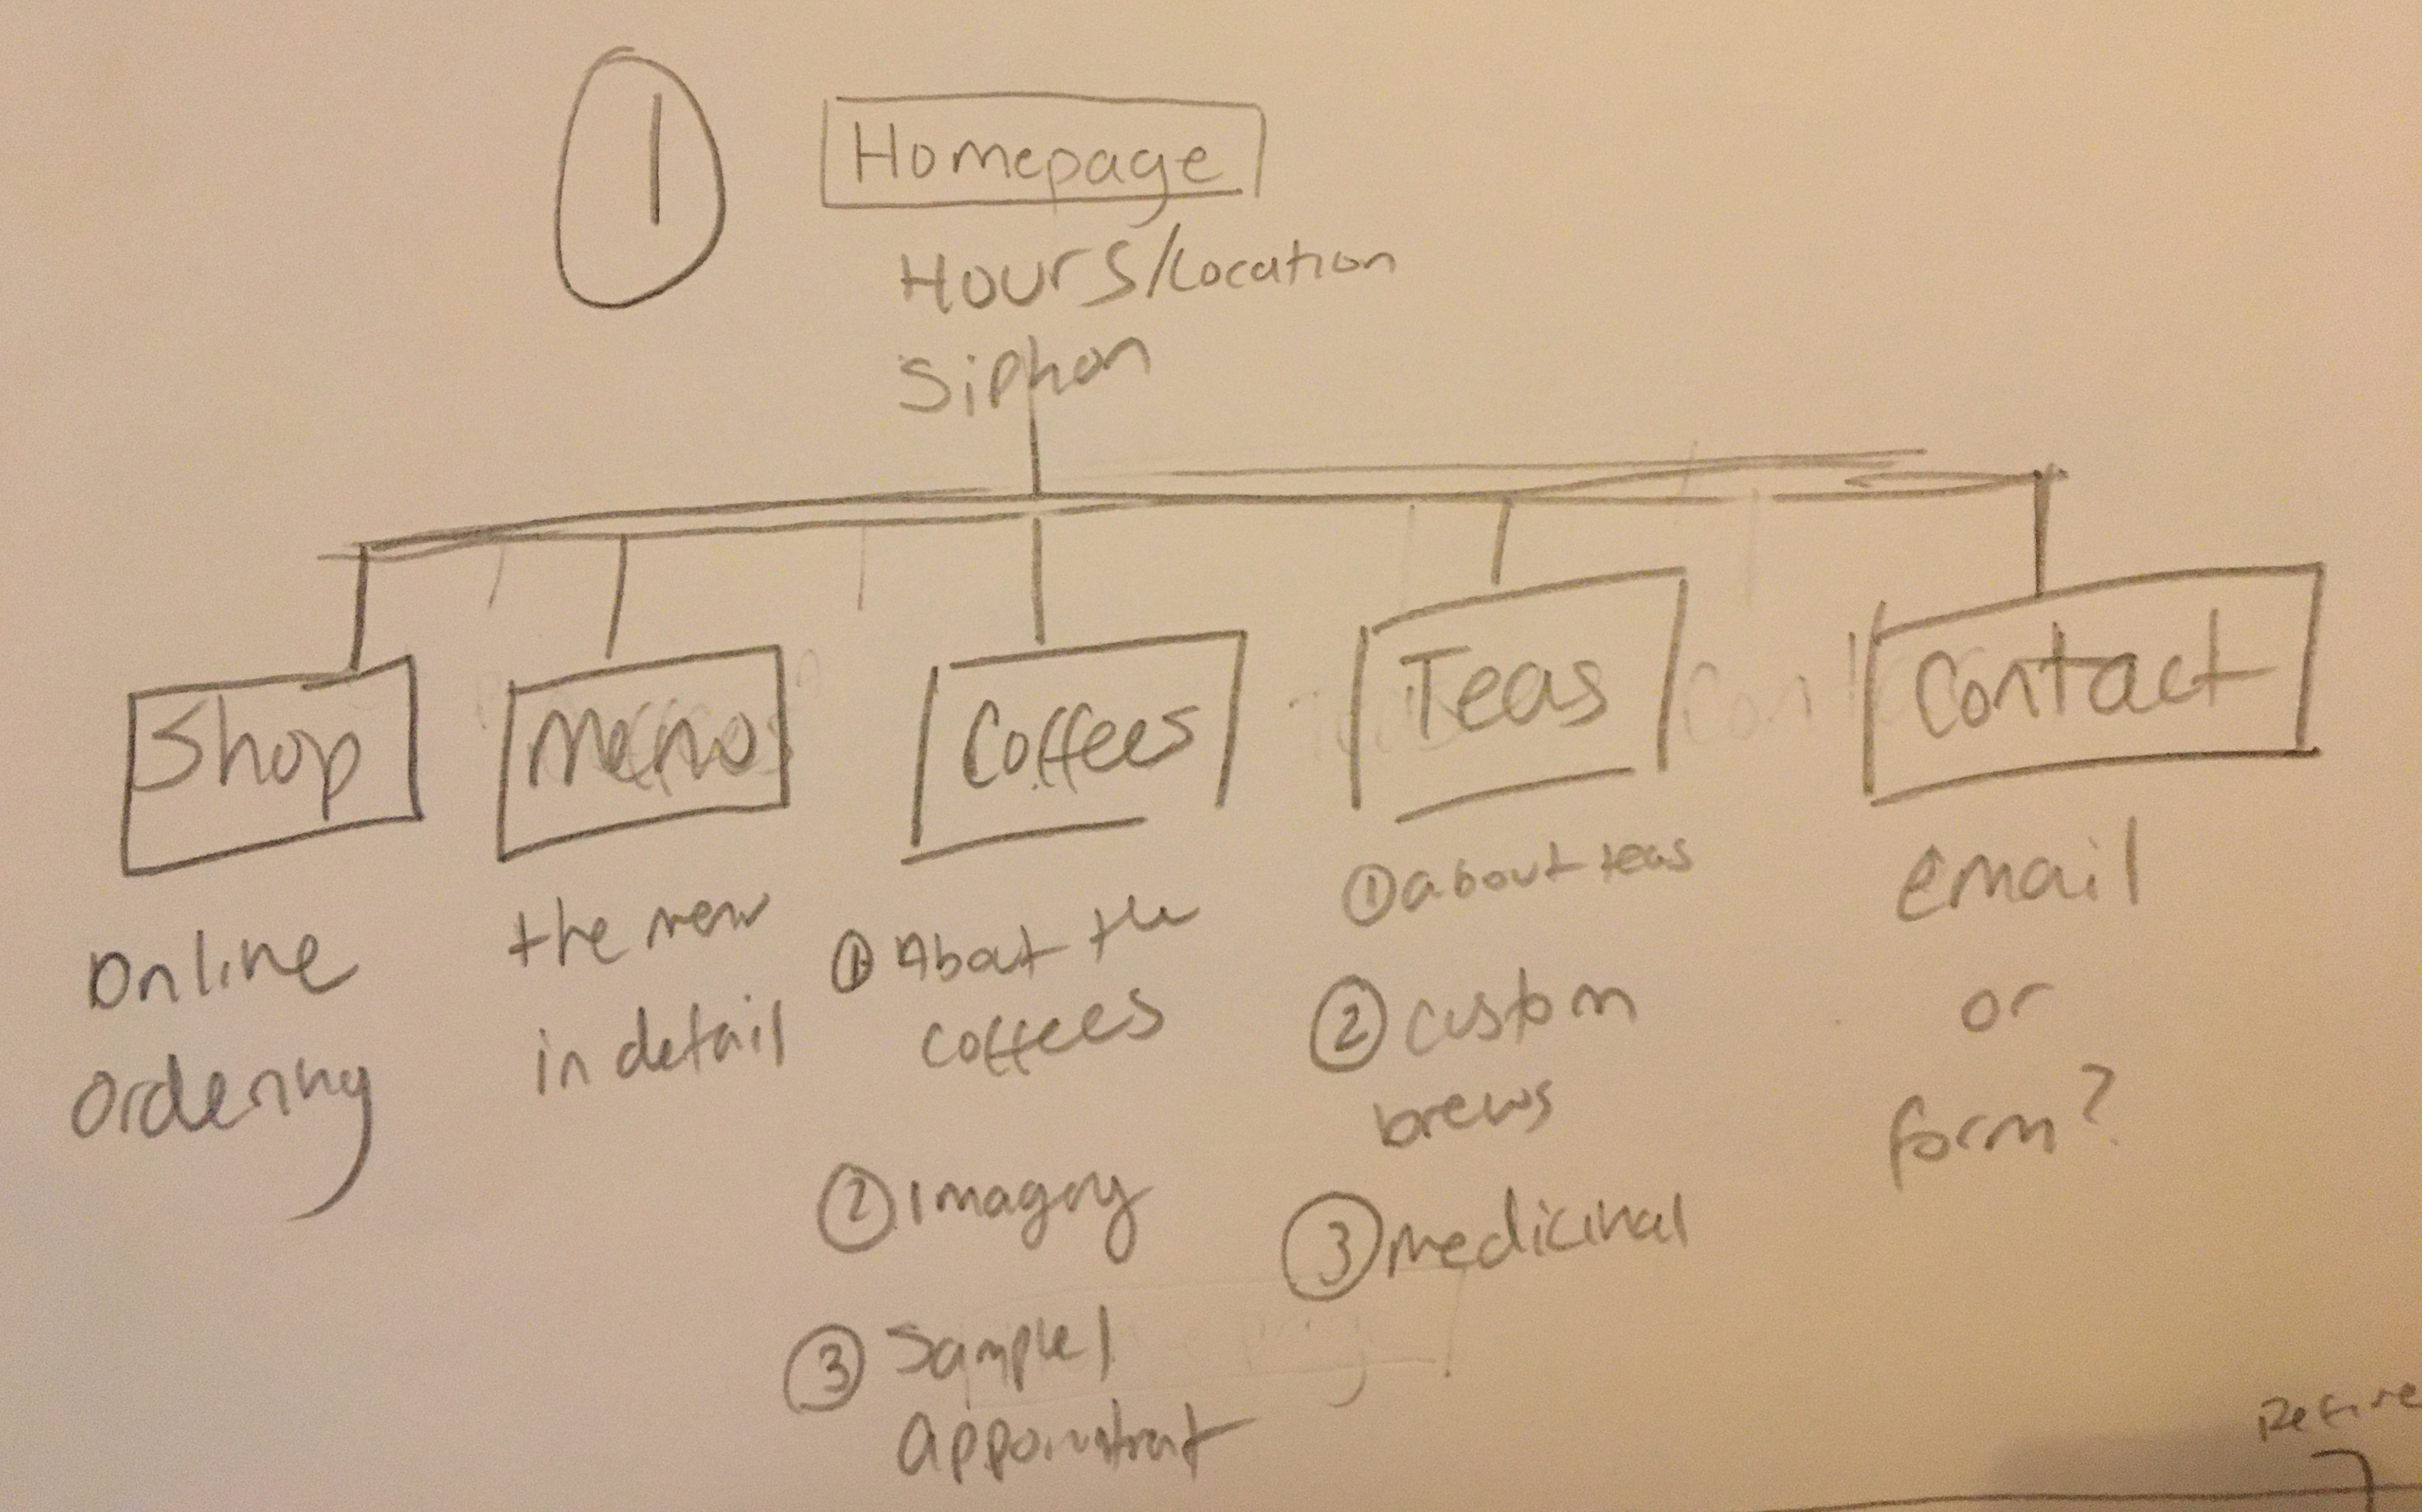 1
Homepage
Hours/Location
Siphon
Shop
Menu
Coffees
Teas
Contact
Online
Ordering
the menu
in detail
① About the
coffees
② Imagery
③ Sample/
Appointment
① about teas
② custom
brews
③ medicinal
email
or
form?